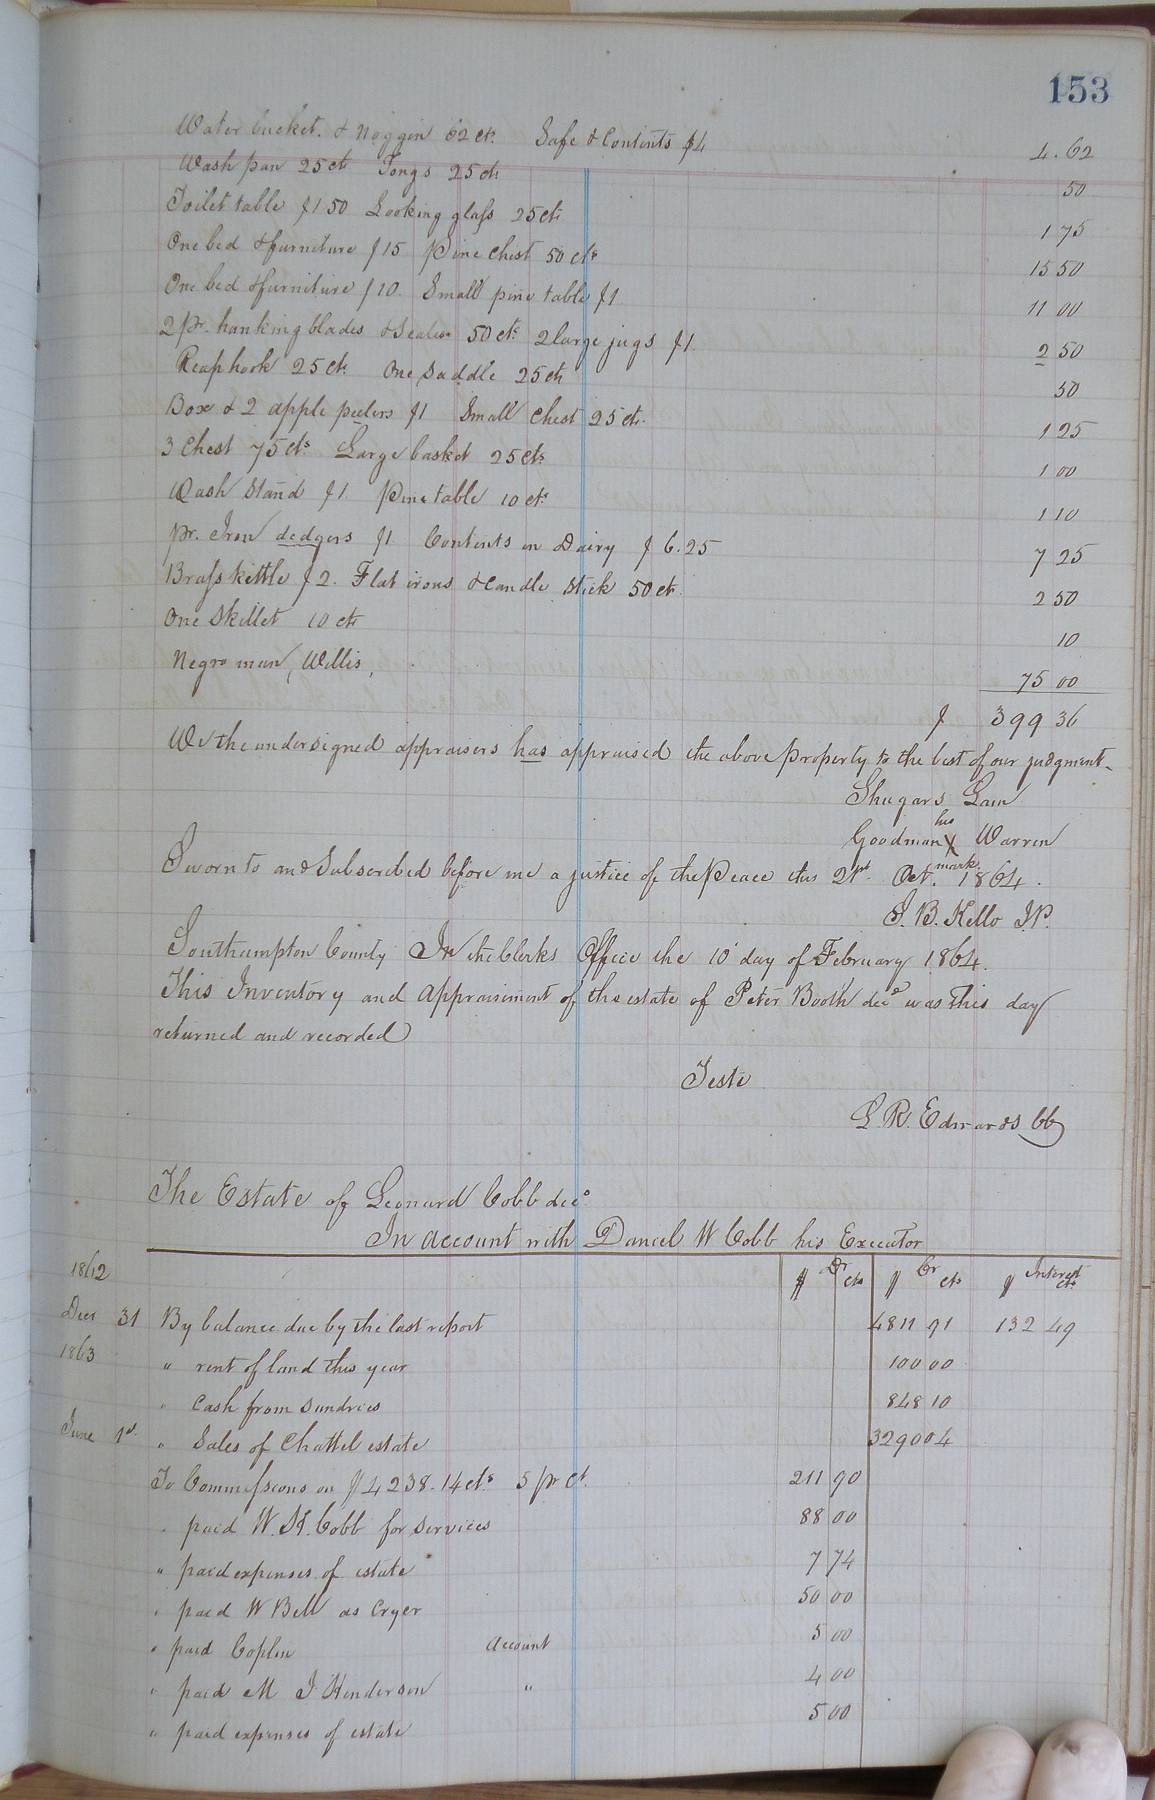 153
Water bucket. & Noggin 62 cts. Safe & Contents $4 4.62
Wash pan 25 cts Tongs 25 cts 50
Toilet table $1 50 Looking glass 25 cts 1 75
One bed & furniture $15 Pine Chest 50 cts 15 50
One bed & furniture $10. Small pine table $1 11 00
2 pr. hanking blades & 50 cts 2 large jugs $1. 2 50
Reap hook 25 cts. One Saddle 25 cts 50
Box & 2 apple peelers $1 Small Chest 25 cts. 1 25
3 Chest 75 cts Large basket 25 cts 1 00
Wash Stand $1. Pine table 10 cts 1 10
pr. Iron dedgers $1. Contents in Dairy $6.25 7 25
Brass kettle $2. Flat irons & Candle Stick 50 cts. 2 50
One Skillet 10 cts 10
Negro man, Willis, 75 00
$ 399 36
We the undersigned appraisers has appraised the above property to the best of our judgment.
Shugars Lain
his
Goodman X Warren
mark
Sworn to and Subscribed before me a justice of the Peace this 21st Oct. 1864.
J. B. Kello J.P.
Southampton County In the Clerks Office the 10 day of February 1864.
This Inventory and Appraisement of the estate of Peter Booth decd was this day
returned and recorded
Teste
L. R. Edwards CC
The Estate of Leonard Cobb decd
In account with Daniel W Cobb his Executor
1862 $ Dr cts $ Cr cts $ Interest cts
Decr 31 By balance due by the last report 4811 91 132 49
1863 " rent of land this year 100 00
" Cash from Sundries 848 10
June 1st. " Sales of Chattel estate 3290 04
To Commissions on $4238.14 cts 5 pr ct. 211 90
" paid W. H. Cobb for services 88 00
" paid expenses of estate 7 74
" paid W Bell as Cryer 50 00
" paid Coplin account 5 00
" paid M J Henderson " 4 00
" paid expenses of estate 5 00